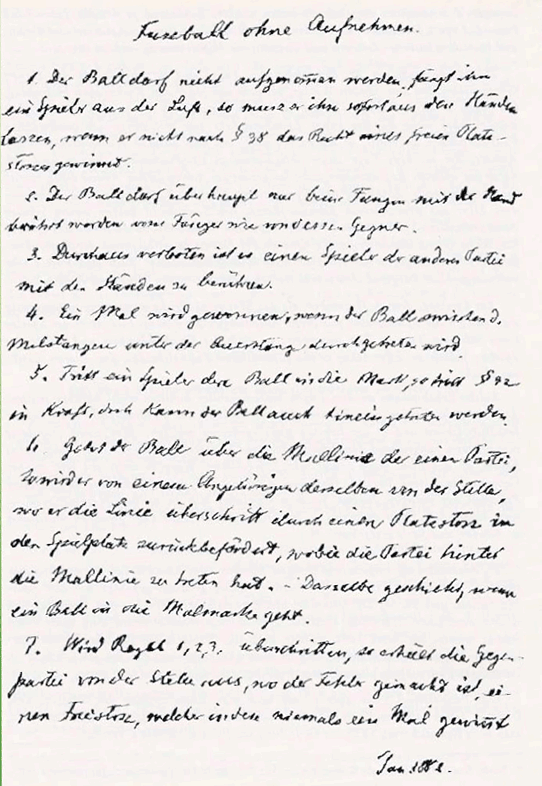 Fussball ohne Aufnehmen.
1. Der Ball darf nicht aufgenommen werden, fängt ihn
ein Spieler aus der Luft, so musz er ihn sofort aus den Händen
lassen, wenn er nicht nach § 38 das Recht eines freien Platz-
stosses gewinnt.
2. Der Ball darf überhaupt nur beim Fangen mit der Hand
berührt werden vom Fänger wie von dessen Gegner.
3. Durchaus verboten ist es einen Spieler der anderen Partei
mit den Händen zu berühren.
4. Ein Mal wird gewonnen, wenn der Ball zwischen d.
Malstangen unter der Querstang durchgetreten wird.
5. Tritt ein Spieler den Ball in die Mark, so tritt § 32
in Kraft, doch kann der Ball auch hineingetreten werden.
6. Geht der Ball über die Mallinie der einen Partei,
so wird er von einem Angehörigen derselben von der Stelle,
wo er die Linie überschritt durch einen Platzstosz in
den Spielplatz zurückbefördert, wobei die Partei hinter
die Mallinie zu treten hat. – Dasselbe geschieht, wenn
ein Ball in die Malmarke geht.
7. Wird Regel 1, 2, 3. überschritten, so erhält die Gegen-
partei von der Stelle aus, wo der Fehler gemacht ist ei-
nen Freistosz, welcher indes niemals ein Mal gewinnt